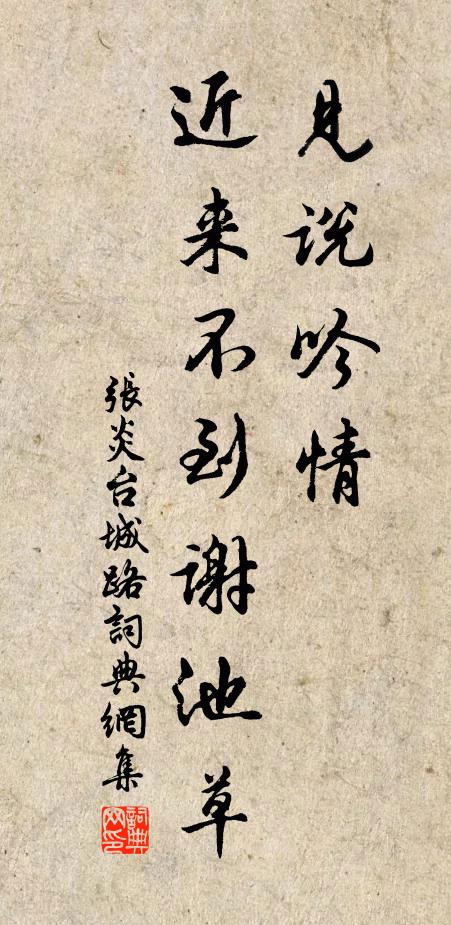 見説吟情
近来不到谢池草
張炎台城路詞典網集
詞典
网印